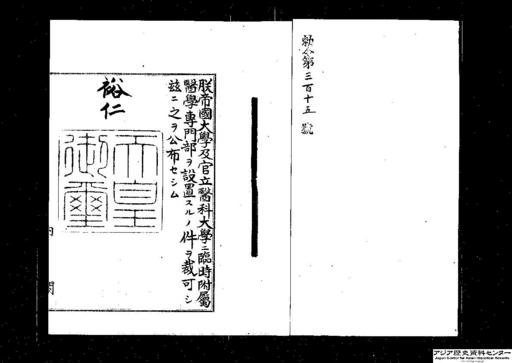 勅令第三百十五號
朕帝國大學及官立醫科大學ニ臨時附屬
醫學專門部ヲ設置スルノ件ヲ裁可シ
茲ニ之ヲ公布セシム
裕仁
天皇
御璽
内閣
アジア歴史資料センター
Japan Center for Asian Historical Records